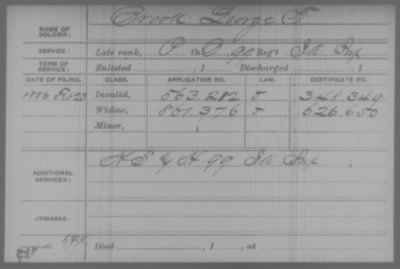 NAME OF SOLDIER: Crook, George T.
SERVICE: Late rank, P Co D, 99 Reg't Ill Inf
TERM OF SERVICE: Enlisted , 1 Discharged , 1
DATE OF FILING. CLASS. APPLICATION NO. LAW. CERTIFICATE NO.
Invalid, 563.282 348.349
Widow, 861.376 626.650
Minor,
ADDITIONAL SERVICES: 99 Ill Inf.
REMARKS:
Died , 1 , at